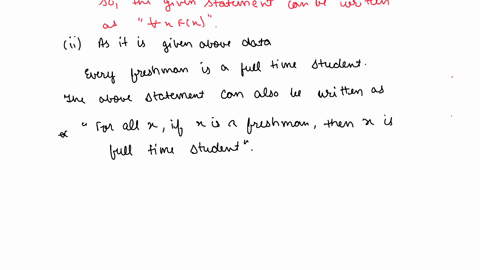 so, the given statement can be written
as "∀ x F(x)".
(ii) As it is given above data
Every freshman is a full time student.
The above statement can also be written as
"For all x, if x is a freshman, then x is
full time student".